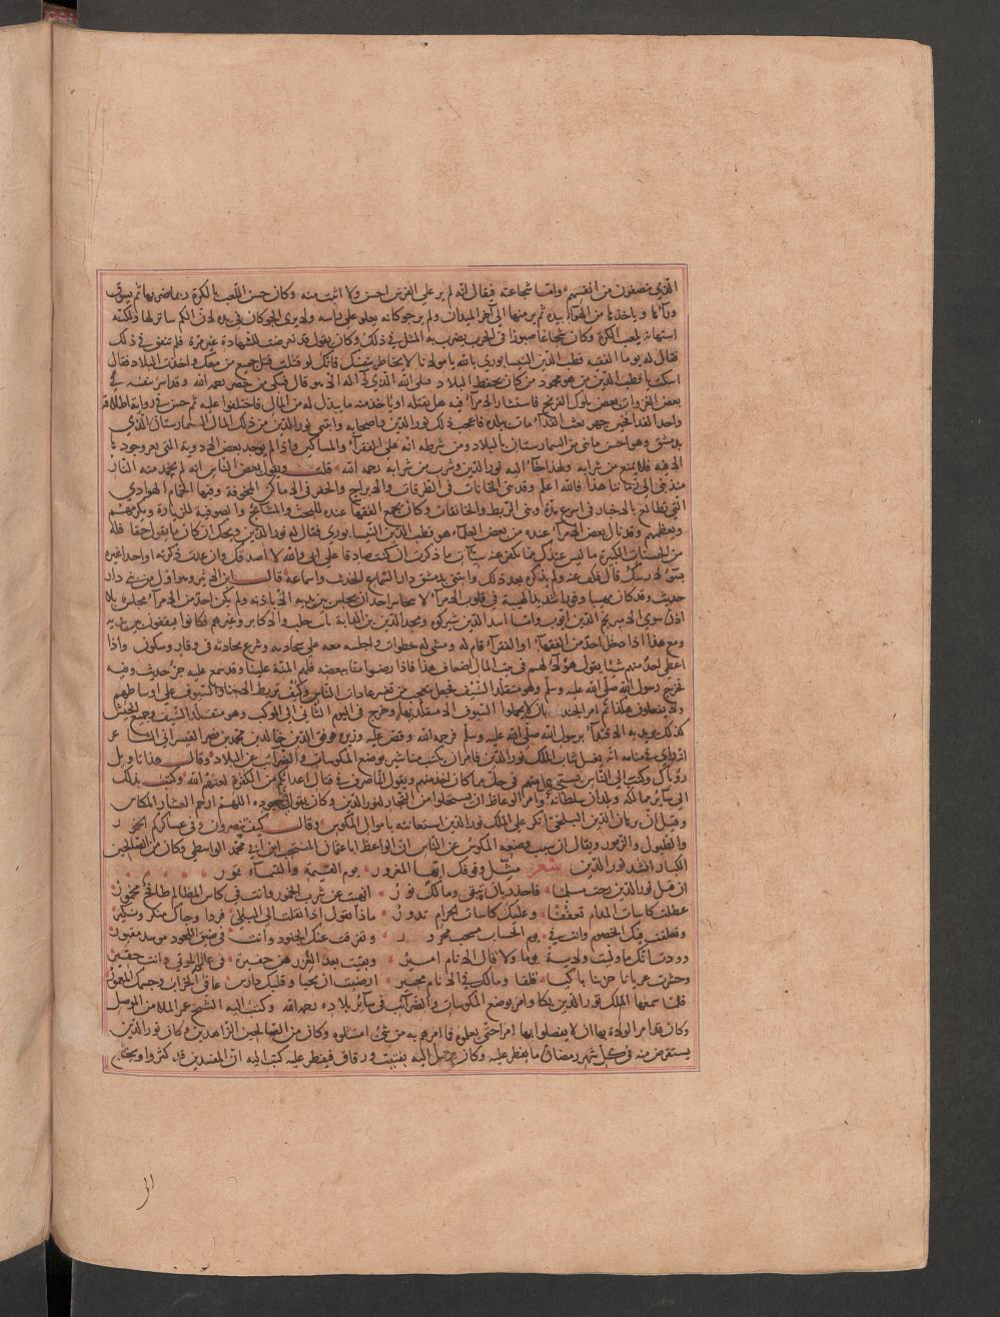 الذي ينصفون من انفسهم واما شجاعته فيقال انه لم ير على الفرس احسن ولا اثبت منه وكان حسن اللعب بالكرة ربما ضربها ثم يسوق
وراءها وياخذها من الهوا بيده ثم يرميها الى آخر الميدان ولم ير جوكانه يعلو على راسه ولا يرى الجوكان في يده لان الكم ساتر لها ولكنه
استهانة بلعب الكرة وكان شجاعا صبورا في الحرب يضرب به المثل في ذلك وكان يقول قد تعرضت للشهادة غير مرة فلم تتفق في ذلك
فقال له يوما الفقيه قطب الدين النيسابوري بالله يا مولانا لا تخاطر بنفسك فانك لو قتلت قتل جميع من معك واخذت البلاد فقال
اسكت يا قطب الدين من هو محمود من كان يحفظ البلاد قبلي الله الذي لا اله الا هو قال فبكى من حضر رحمه الله وقد اسر بنفسه في
بعض الغزوات بعض ملوك الفرنج فاستشار الامراء فيه هل يقتله او ياخذ منه ما يبذل له من المال فاختلفوا عليه ثم حسن في رايه اطلاقه
بدمشق وهو احسن ما بني من البيمارستان بالبلاد ومن شرطه انه على الفقراء والمساكين واذا لم يوجد بعض الادوية التي يعز وجودها
الا فيه فلا يمنع من شرابه ولهذا جاء اليه نور الدين وشرب من شرابه رحمه الله قلت ويقول بعض الناس انه لم يخمد منه النار
منذ بني الى زماننا هذا فالله اعلم وقد بنى الخانات في الطرقات والابراج والخفر في الاماكن المخوفة وفيها الحمام الهوادي
التي تطالع بالاخبار في اسرع مدة وبنى الربط والخانقات وكان يجمع الفقها عنده للبحث والمشايخ والصوفية للزيارة ويكرمهم
ويعظمهم وقد نال بعض الامراء عنده من بعض العلماء هو قطب الدين النيسابوري فقال له نور الدين ويحك ان كان ما تقول حقا فله
من الحسنات الكثيرة ما ليس عندك مما يكفر عنه سيئات ما ذكرت ان كنت صادقا على اني والله لا اصدقك وان عدت ذكرته او احدا غيره
بسوء لاوذينك قال فكف عنه ولم يذكره بعد ذلك وابتنى بدمشق دار لسماع الحديث واسماعه قال ابن الاثير وهو اول من بنى دار
حديث وقد كان مهيبا وقورا شديد الهيبة في قلوب الامراء لا يتجاسر احد ان يجلس بين يديه الا باذنه ولم يكن احد من الامراء يجلس بلا
اذن سوى الامير نجم الدين ايوب واما اسد الدين شيركوه ومجد الدين بن الداية نايب حلب والاكابر وغيرهم فكانوا يقفون بين يديه
ومع هذا اذا دخل احد من الفقهاء او الفقراء قام له ومشى له خطوات واجلسه معه على سجادته وشرع يحادثه في وقار وسكون واذا
اعطى احدا منهم شيئا يقول هولاء لهم في بيت المال اضعاف هذا فاذا رضوا منا ببعضه فلهم المنة علينا وقد سمع عليه جزء حديث وفيه
فخرج رسول الله صلى الله عليه وسلم وهو متقلد السيف فجعل يتعجب من تغير عادات الناس وكيف تربط الاجناد السيوف على اوساطهم
ولا يفعلون هكذا ثم امر الجند بان لا يحملوا السيوف الا متقلديها وخرج في اليوم الثاني الى الموكب وهو متقلد السيف وجميع الجيش
كذلك يريد به الاقتداء برسول الله صلى الله عليه وسلم فرحمه الله وقص عليه وزيره موفق الدين خالد بن محمد بن نصر القيسراني الشاعر
انه راى في منامه انه يغسل ثياب الملك نور الدين فامر ان يكتب مناشير بوضع المكوسات والضرائب عن البلاد وقال هذا تاويل
رؤياك وكتب الى الناس يستحل منهم في حل مما كان اخذ منهم ويقول انما صرف في قتال اعدائكم من الكفرة لعنهم الله وكتب بذلك
الى سائر ممالكه وبلدان سلطانه وامر الوعاظ ان يستحلوا من التجار لنور الدين وكان يقول في سجوده اللهم ارحم العشار المكاس
وقيل ان برهان الدين البلخي انكر على الملك نور الدين استعانته باموال المكوس وقال كيف تنصرون وفي عساكركم الخمور
والطبول والزمور ويقال ان سبب وضعه المكوس عن الناس ان الواعظ ابا عثمان المنتخب ابن ابي محمد الواسطي وكان من الصالحين
الكبار انشد نور الدين شعر مثل وقوفك ايها المغرور يوم القيمة والسماء تمور
ان قيل نور الدين رحت مسلما فاحذر بان تبقى وما لك نور انهيت عن شرب الخمور وانت في كاس المظالم طافح مخمور
عطلت كاسات المدام تعففا وعليك كاسات الحرام تدور ماذا تقول اذا نقلت الى البلى فردا وجاك منكر ونكير
وتعلقت فيك الخصوم وانت في يوم الحساب مسحب مجرور وتفرقت عنك الجنود وانت في ضيق اللحود موسد مقبور
ووددت انك ما وليت ولاية يوما ولا قال الانام امير وبقيت بعد العز رهن حفيرة في عالم الموتى وانت حقير
وحشرت عريانا حزينا باكيا قلقا وما لك في الانام مجير ارضيت ان تحيا وقلبك دارس عافي الخراب وجسمك المعمور
فلما سمعها الملك نور الدين بكا وامر بوضع المكوسات والضرائب في سائر بلاده رحمه الله وكتب اليه الشيخ عمر الملا من الموصل
وكان قد امر الولاة بها ان لا يفصلوا بها امرا حتى يعلموه فما امرهم به من شيء امتثلوه وكان من الصالحين الزاهدين وكان نور الدين
يستقرض منه في كل شهر رمضان ما يفطر عليه وكان يرسل اليه بفتيت ورقاق فيفطر عليه كتب اليه ان المفسدين قد كثروا ويحتاج
الى